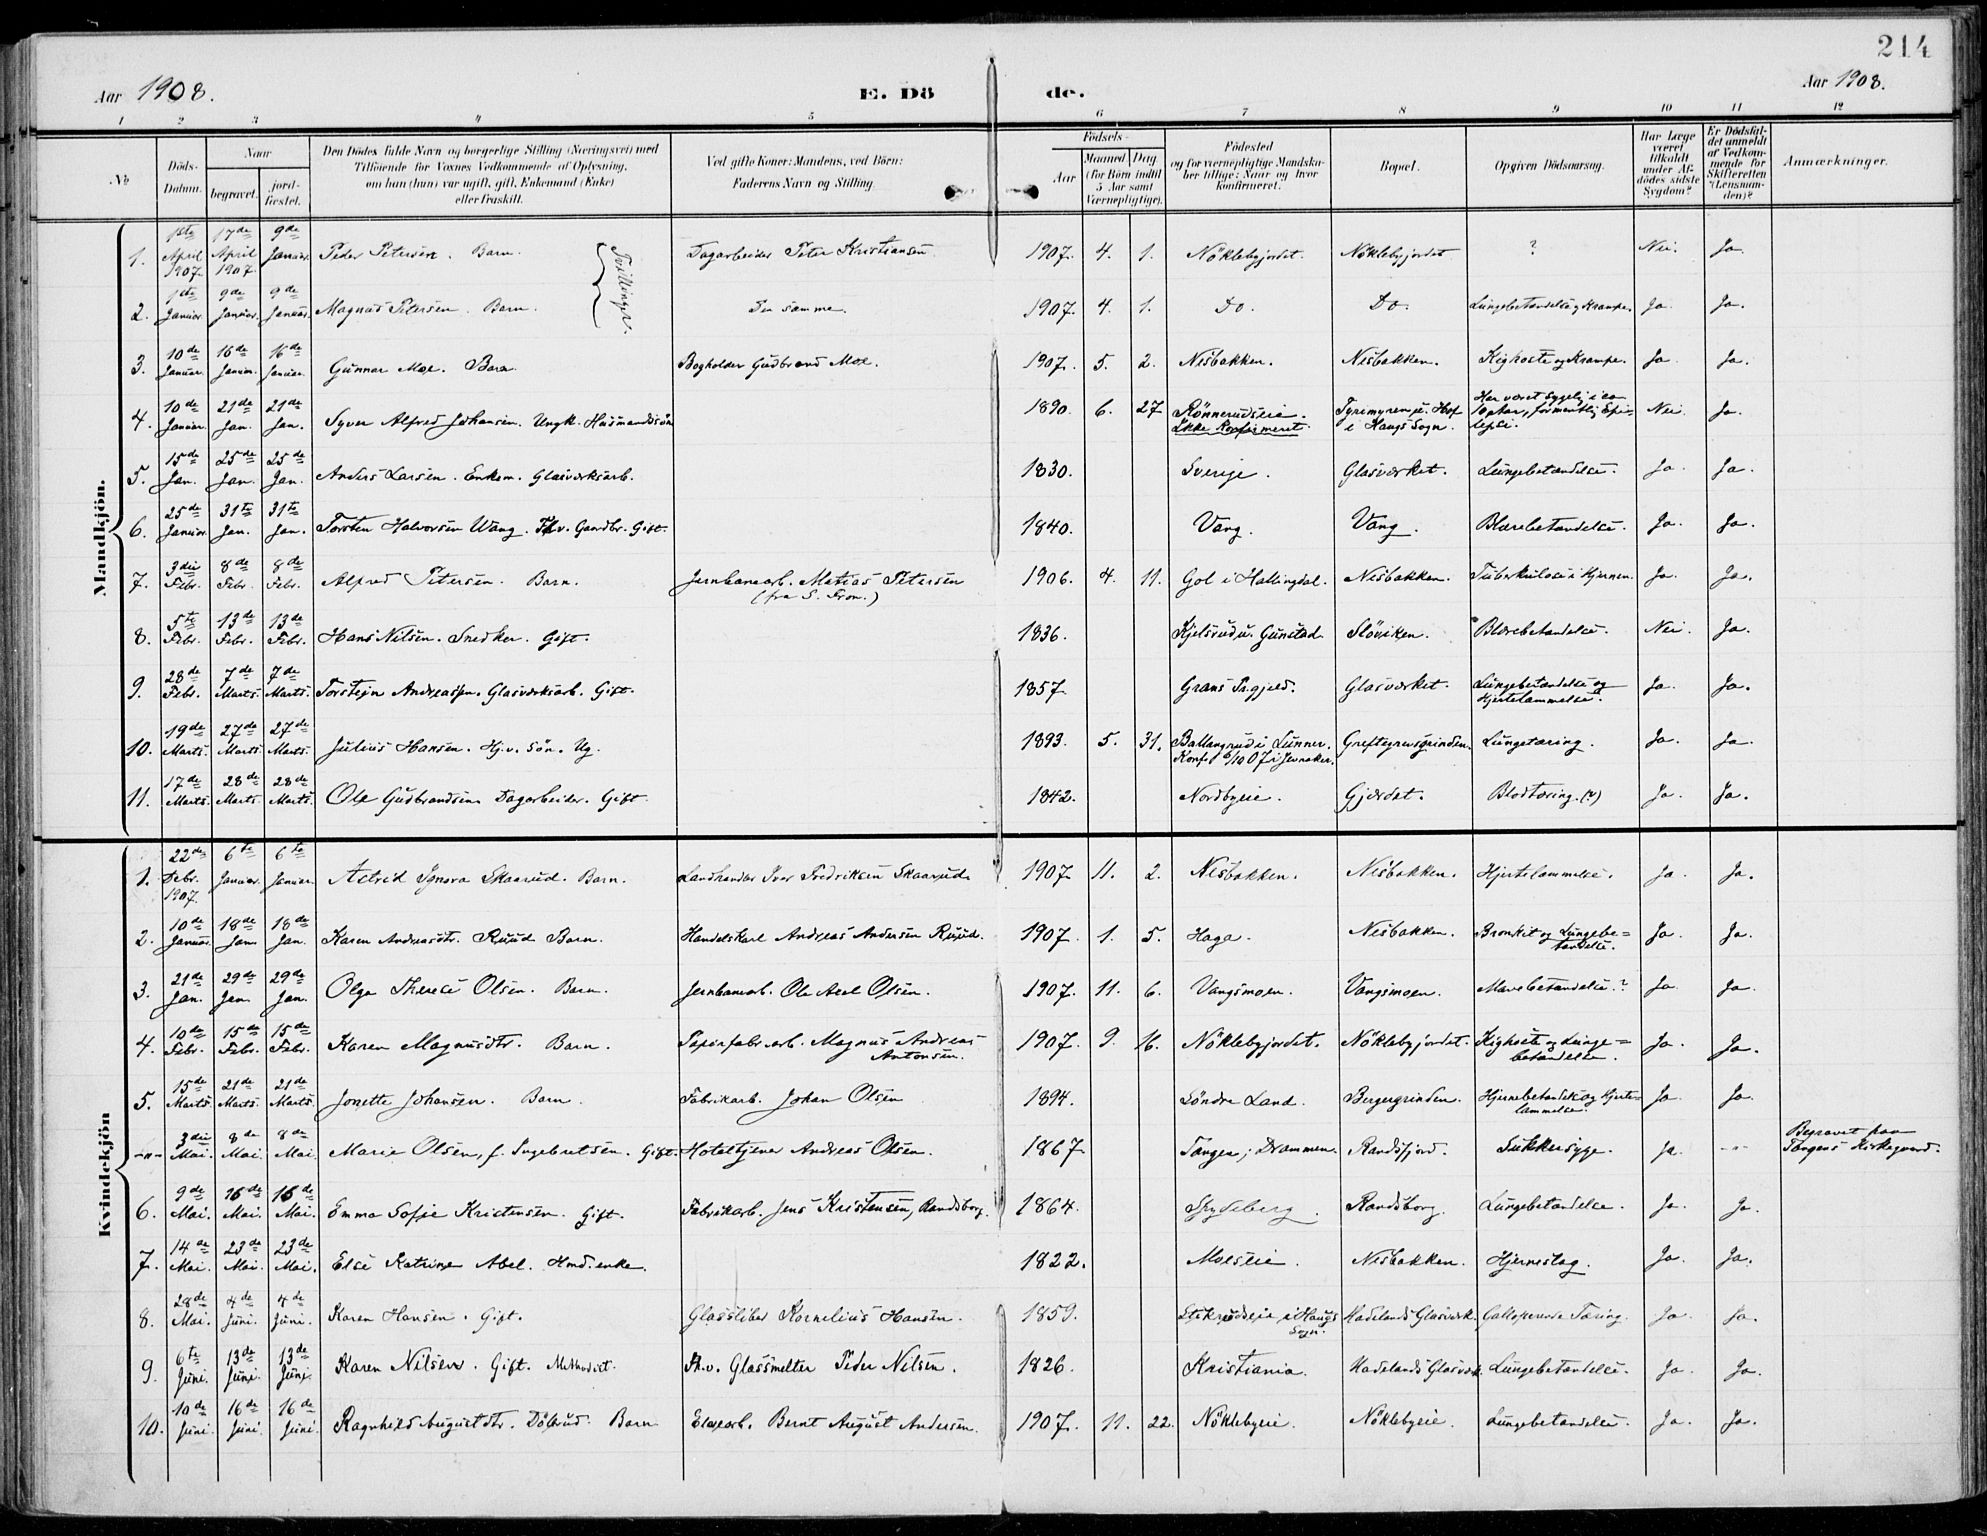 214
Aar 1908. E. Dö de. Aar 1908.
1 2 3 4 5 6 7 8 9 10 11 12
№ Döds-Datum. Naar begravet. jord-fæstet. Den Dödes fulde Navn og borgerlige Stilling (Næringsvei) med Tilföiende for Voxnes Vedkommende af Oplysning, om han (hun) var ugift, gift, Enkemand (Enke) eller fraskilt. Ved gifte Koner: Mandens, ved Börn: Faderens Navn og Stilling. Födsels- Aar Maaned Dag (for Börn indtil 5 Aar samt Værnepligtige). Födested og for værnepligtige Mandska-ber tillige: Naar og hvor konfirmeret. Bopæl. Opgiven Dödsaarsag. Har Læge været tilkaldt under Af-dödes sidste Sygdom? Er Dödsfal-det anmeldt af Vedkom-mende for Skifteretten (Lensman-den)? Anmærkninger.
Mandkjön.
1. 1ste April 1907. 17de April 1907 9de Januar. Peder Petersen. Barn. Tvillinger. Dagarbeider Peter Kristiansen 1907. 4. 1. Nöklebyjordet. Nöklebyjordet ? Nei. Ja.
2. 1ste Januar. 9de Januar. 9de Januar. Magnus Petersen. Barn. Den samme. 1907. 4. 1. Do. Do. Lungebetændelse og Krampe. Ja. Ja.
3. 10de Januar. 16de Januar. 16de Januar. Gunnar Moe. Barn Bogholder Gudbrand Moe. 1907. 5. 2. Nesbakken. Nesbakken. Kighoste og Krampe. Ja. Ja.
4. 10de Januar. 21de Jan. 21de Jan. Syver Alfred Johansen. Ungk. Husmandssön 1890. 6. 27 Rönnerudseie. Ikke Konfirmeret. Tyrimyren u. Hof i Haugs Sogn. Har været sygelig i ca 10 Aar, formentlig Epi-lepsi. Nei. Ja.
5. 15de Jan. 25de Jan. 25de Jan. Anders Larsen. Enkem. Glasværksarb. 1830. Sverige. Glasværket. Lungebetændelse. Ja. Ja.
6. 25de Januar. 31te Jan. 31te Jan. Torsten Halvorsen Wang. Fhv. Gaardbr. Gift. 1840. Vang. Vang. Blærebetændelse. Ja. Ja.
7. 3die Febr. 8de Febr. 8de Febr. Alfred Petersen. Barn. Jernbanearb. Matias Petersen (fra S. Fron.) 1906. 4. 11. Gol i Hallingdal. Nesbakken. Tuberkulose i Hjernen. Ja. Ja.
8. 5te Febr. 13de Febr. 13de Febr. Hans Nilsen. Snedker. Gift. 1836. Kjelsrud u. Gunstad. Slöviken. Blærebetændelse. Nei. Ja.
9. 28de Febr. 7de Marts. 7de Marts. Torstein Andreassen. Glasværksarb. Gift. 1857. Grans Prgjeld. Glasværket. Lungebetændelse og Hjertelammelse. Ja. Ja.
10. 19de Marts. 27de Marts. 27de Marts. Julius Hansen. Hj.v. sön. Ug. 1893. 5. 31. Ballangrud i Lunner. Konf. 6/10 07 i Jevnaker. Greftegrevsgrinden. Lungetæring. Ja. Ja.
11. 17de Marts. 28de Marts. 28de Marts. Ole Gudbrandsen Dagarbeider. Gift. 1842. Nordbyeie. Gjerdet. Blodtæring. (?) Ja. Ja.
Kvindekjön
1. 22de Debr. 1907. 6te Januar. 6te Januar. Astrid Ignora Skaarud. Barn. Landhandler Iver Fredriksen Skaarud. 1907. 11. 2. Nesbakken. Nesbakken. Hjertelammelse. Ja. Ja.
2. 10de Januar. 18de Jan. 18de Jan. Karen Andreasdtr. Ruud Barn. Handelskarl Andreas Andersen Ruud. 1907. 1. 5. Haga. Nesbakken. Bronkit og Lungebe-tændelse. Ja. Ja.
3. 21de Jan. 29de Jan. 29de Jan. Olga Therese Olsen. Barn. Jernbanearb. Ole Axel Olsen. 1907. 11. 6. Vangsmoen. Vangsmoen. Mavebetændelse? Ja. Ja.
4. 10de Febr. 15de Febr. 15de Febr. Karen Magnusdtr. Barn. Papirfabr.arb. Magnus Andreas Antonsen. 1907. 9. 16. Nöklebyjordet. Nöklebyjordet. Kighoste og Lunge-betændelse. Ja. Ja.
5. 15de Marts. 21de Marts. 21de Marts. Jonette Johansen. Barn. Fabrikarb. Johan Olsen 1894. Söndre Land. Bergergrinden. Hjernebetændelse og Hjerte-lammelse. Ja. Ja.
-"- 3die Mai. 8de Mai. 8de Mai Marie Olsen, f. Ingebretsen. Gift. Hoteltjener Andreas Olsen. 1867. Tangen i Drammen. Randsfjord. Sukkersyge. Ja. -- Begravet paa Tangens Kirkegaard.
6. 9de Mai. 16de Mai. 16de Mai. Emma Sofie Kristensen. Gift. Fabrikarb. Jens Kristensen, Randsborg. 1864. Spydeberg. Randsborg. Lungebetændelse. Ja. Ja.
7. 14de Mai. 23de Mai. 23de Mai. Else Katrine Abel. Hmd.enke. 1822. Moeseie. Nesbakken. Hjerneslag. Ja. Ja.
8. 28de Mai. 4de Juni. 4de Juni. Karen Hansen. Gift. Glassliber Kornelius Hansen. 1859. i Haugs Sogn. Hadelands Glasværk. Galloperende Tæring. Ja. Ja.
9. 6te Juni. 13de Juni. 13de Juni. Karen Nilsen. Gift. Methodist. Fh.v. Glassmelter Peder Nilsen. 1826. Kristiania. Hadelands Glasværk. Lungebetændelse. Ja. Ja.
10. 10de Juni. 16de Juni. 16de Juni. Ragnhild Augustdtr. Dölerud. Barn Elvearb. Bernt August Andersen. 1907. 11. 22. Nöklebyeie. Nöklebyeie. Lungebetændelse. Ja. Ja.